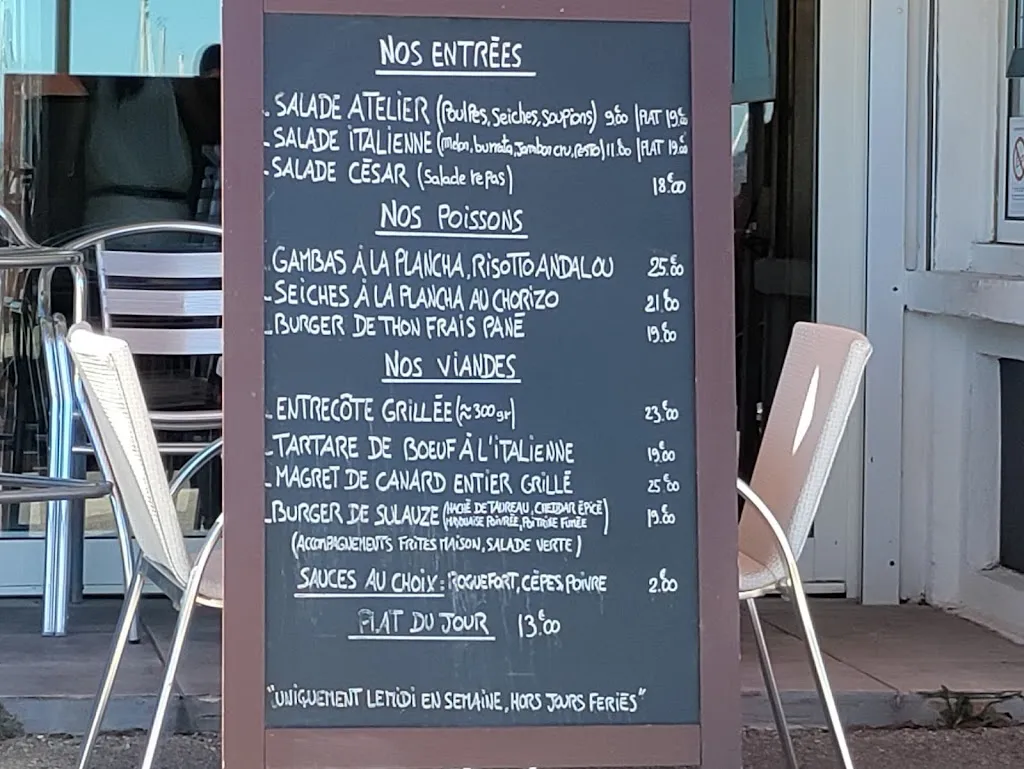 NOS ENTRÉES
- SALADE ATELIER (Poulpes, Seiches, Soupions) 9€00 | PLAT 19€
- SALADE ITALIENNE (Melon, burrata, Jambon cru, Pesto) 11.00 | PLAT 19.00
- SALADE CÉSAR (Salade repas) 18€00
NOS POISSONS
- GAMBAS À LA PLANCHA, RISOTTO ANDALOU 25€00
- SEICHES À LA PLANCHA AU CHORIZO 21€00
- BURGER DE THON FRAIS PANÉ 19€00
NOS VIANDES
- ENTRECÔTE GRILLÉE (≈300gr) 23€00
- TARTARE DE BOEUF À L'ITALIENNE 19€00
- MAGRET DE CANARD ENTIER GRILLÉ 25€00
- BURGER DE SULAUZE (HACHÉ DE TAUREAU, CHEDDAR ÉPICÉ 19€00
POIVRÉE, POITRINE FUMÉE)
(ACCOMPAGNEMENTS FRITES MAISON, SALADE VERTE)
SAUCES AU CHOIX: ROQUEFORT, CÈPES, POIVRE 2€00
PLAT DU JOUR 13€00
"UNIQUEMENT LE MIDI EN SEMAINE, HORS JOURS FERIÉS"